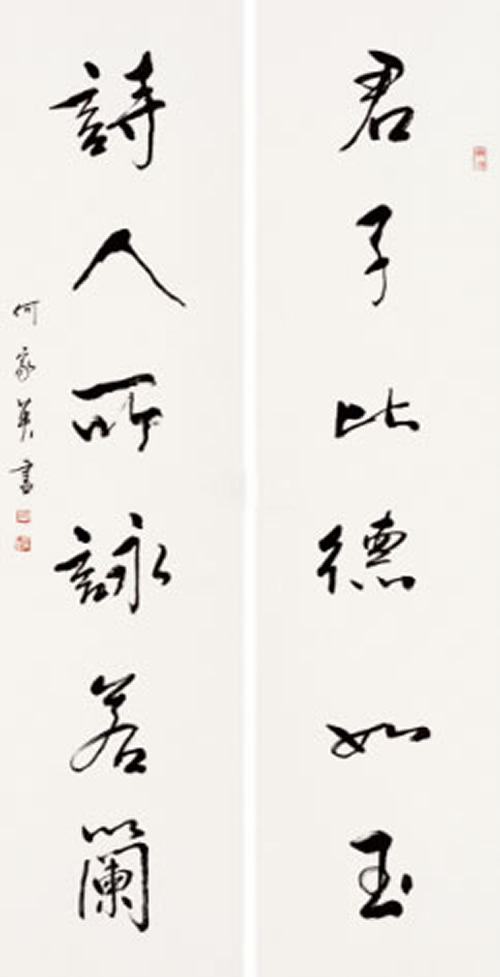 君子比德如玉
詩人所詠若蘭
何家英書